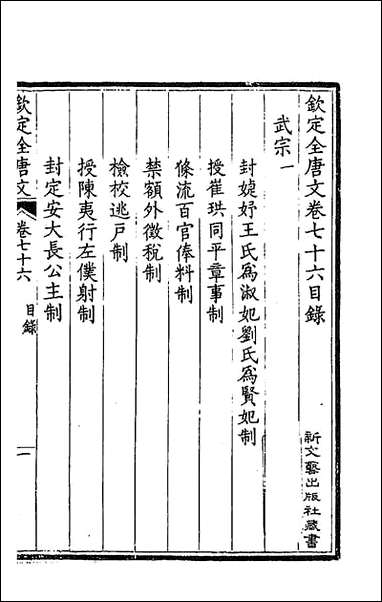 欽定全唐文卷七十六目錄
新文藝出版社藏書
武宗一
封婕妤王氏爲淑妃劉氏爲賢妃制
授崔珙同平章事制
條流百官俸料制
禁額外徵稅制
檢校逃戶制
授陳夷行左僕射制
封定安大長公主制
欽定全唐文 卷七十六 目錄 一